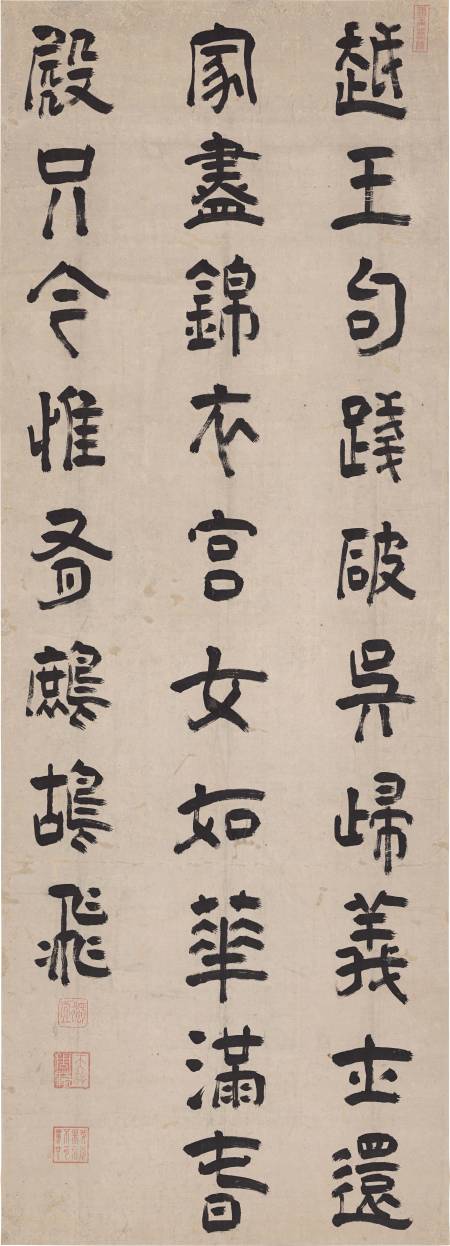 越王句踐破吳歸義士還
家盡錦衣宮女如華滿旾
殿只今惟有鷓鴣飛